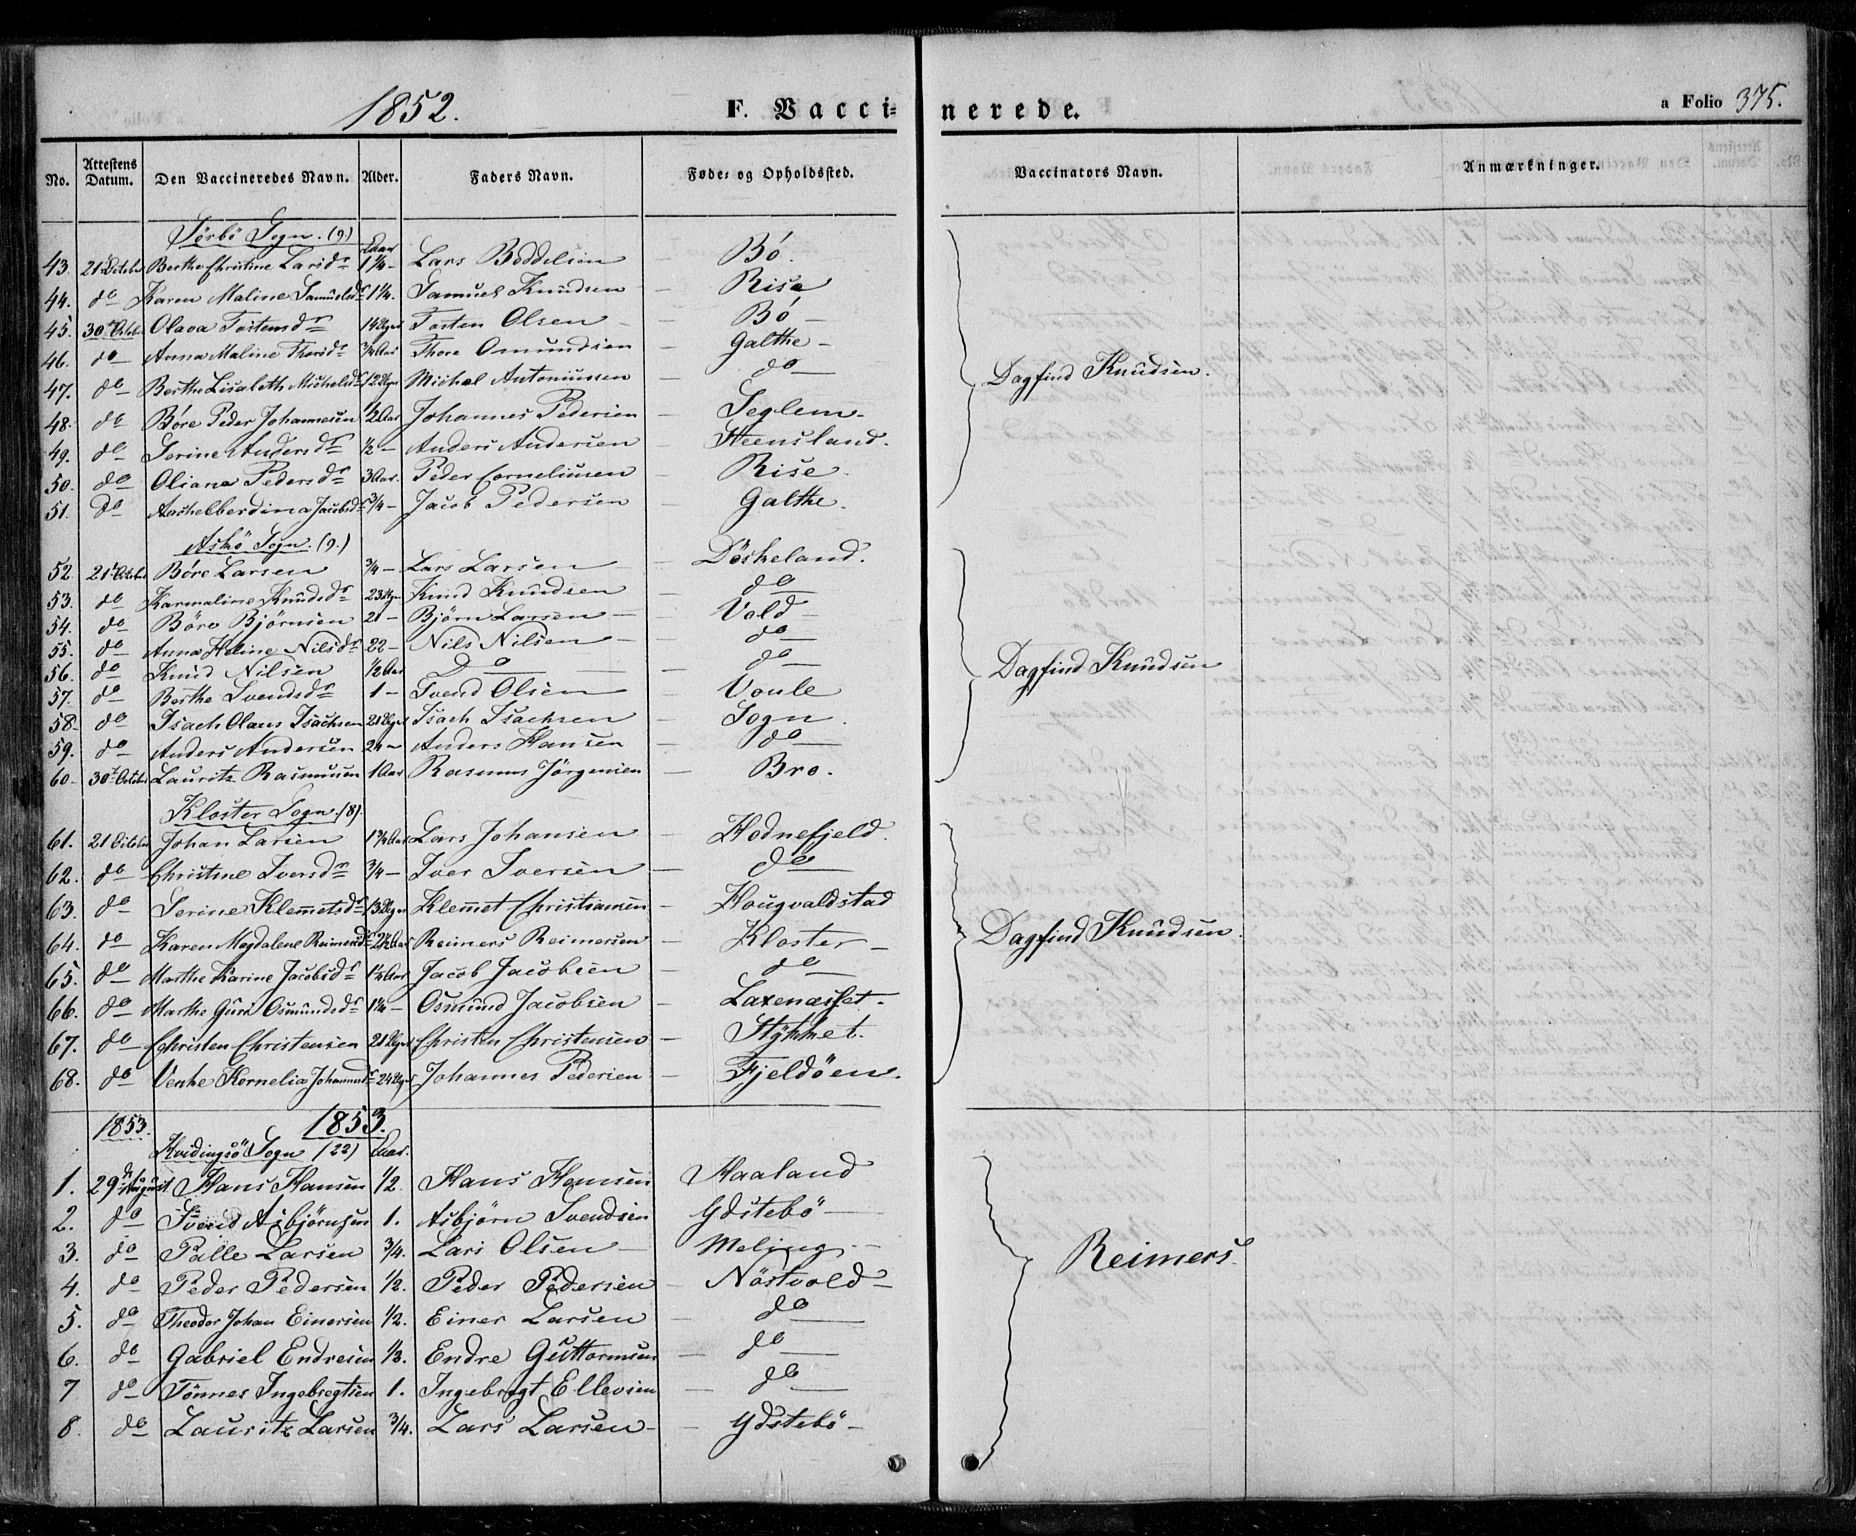 1852. F. Vacci- nerede. a Folio 375.
No. Attestens Datum. Den Vaccineredes Navn. Alder. Faders Navn. Føde- og Opholdssted. Vaccinators Navn. Anmærkninger.
Sörbö Sogn. (9)
43. 21 October Berthe Christine Larsdr 1¼ Lars Boddelsen Bö.
44. do Karen Maline Samuelsdr 1¼. Samuel Knudsen — Rise
45. 30 October Olava Tostensdr 14 Uger Tosten Olsen — Bö —
46. do Anna Maline Thorsdr ¾ Aar Thore Omundsen — Galthe —
47. do Berthe Lisabeth Michelsdr 12 Uger Michel Antoniussen — do
48. do Böre Peder Johannesen ½ Aar Johannes Pedersen — Seglem —
49. do Serine Andersdr ½ — Anders Andersen — Steensland.
50. do Oliana Pedersdr 3 Aar. Peder Corneliusen — Rise.
51. Do Aachelberdina Jacobsdr ¾ — Jacob Pedersen Galthe.
Dagfind Knudsen.
Askö Sogn. (9.)
52. 21 October Böre Larsen ¾ — Lars Larsen — Döskeland.
53. do Karmaline Knudsdr 23 Uger Knud Knudsen — do
54. do Böre Björnsen 21 — Björn Larsen — Vold —
55. do Anna Heline Nilsdr 22 — Nils Nilsen — do
56. do Knud Nilsen ½ Aar Do — do
57. do Berthe Svendsdr 1 — Svend Olsen — Voule
58. do Isach Olaus Isachsen 21 Uger Isach Isachsen — Sogn.
59. do Anders Andersen 24 — Anders Hansen — do
60. 30 October Lauritz Rasmusen 1 Aar Rasmus Jörgensen — Bro.
Dagfind Knudsen
Kloster Sogn. (8).
61. 21 October Johan Larsen 1¾ Aar Lars Johansen — Hodnefjeld.
62. do Christine Iversdr ¾ — Iver Iversen — do
63. do Serine Klemetsdr 13 Uger Klemet Christiansen — Hougvaldstad
64. do Karen Magdalene Reimersdr 2½ Aar Reimers Reimersen — Kloster —
65. do Marthe Karine Jacobsdr 1½ Aar Jacob Jacobsen — do
66. do Marthe Guri Osmundsdr 1¼ — Osmund Jacobsen — Laxenæsset.
67. do Christen Christensen 21 Uger Christen Christensen — Stykket.
68. do Venke Kornelia Johannesdr 24 Uger Johannes Pedersen — Fjeldöen.
Dagfind Knudsen.
1853. 1853.
Hvidingsö Sogn (22) Aar.
1. 29 August Hans Hansen ½. Hans Hansen Haaland
2. do Svend Asbjörnsen 1. Asbjörn Svendsen Ydstebö —
3. do Palle Larsen ¾. Lars Olsen — Meling. —
4. do Peder Pedersen ½. Peder Pedersen — Nöstvold —
5. do Theodor Johan Einersen ½. Einer Larsen — do
6. do Gabriel Endresen ⅓. Endre Guttormsen — do
7 do Tönnes Ingebregtsen 1. Ingebregt Ellevsen — do
8. do Lauritz Larsen ¾. Lars Larsen — Ydstebö —
Reimers.